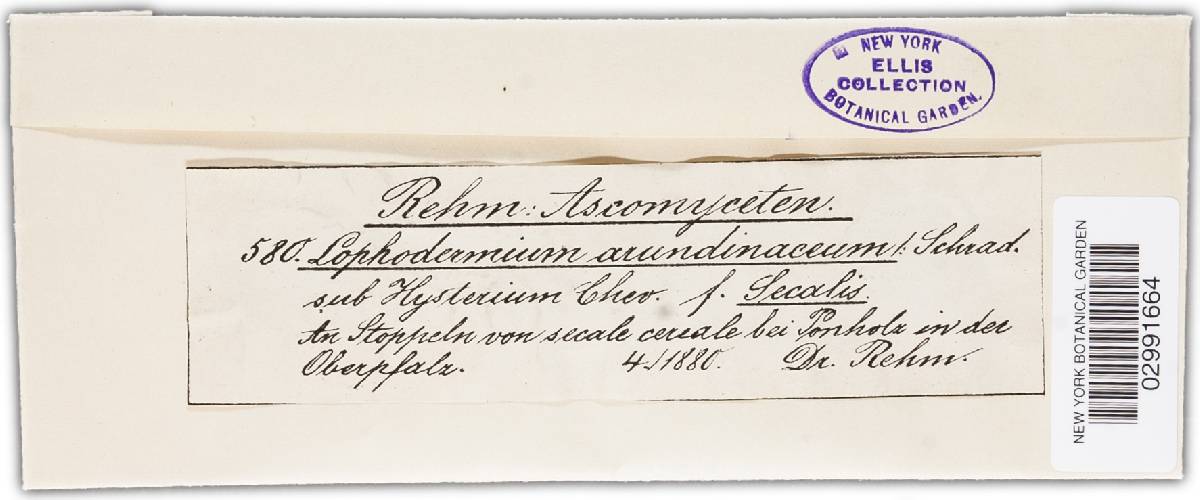 NEW YORK
ELLIS
COLLECTION
BOTANICAL GARDEN.
Rehm: Ascomyceten.
580. Lophodermium arundinaceum /: Schrad.
sub Hysterium Chev. f. Secalis.
An Stoppeln von secale cereale bei Ponholz in der
Oberpfalz. 4./1880. Dr. Rehm.
NEW YORK BOTANICAL GARDEN
02991664